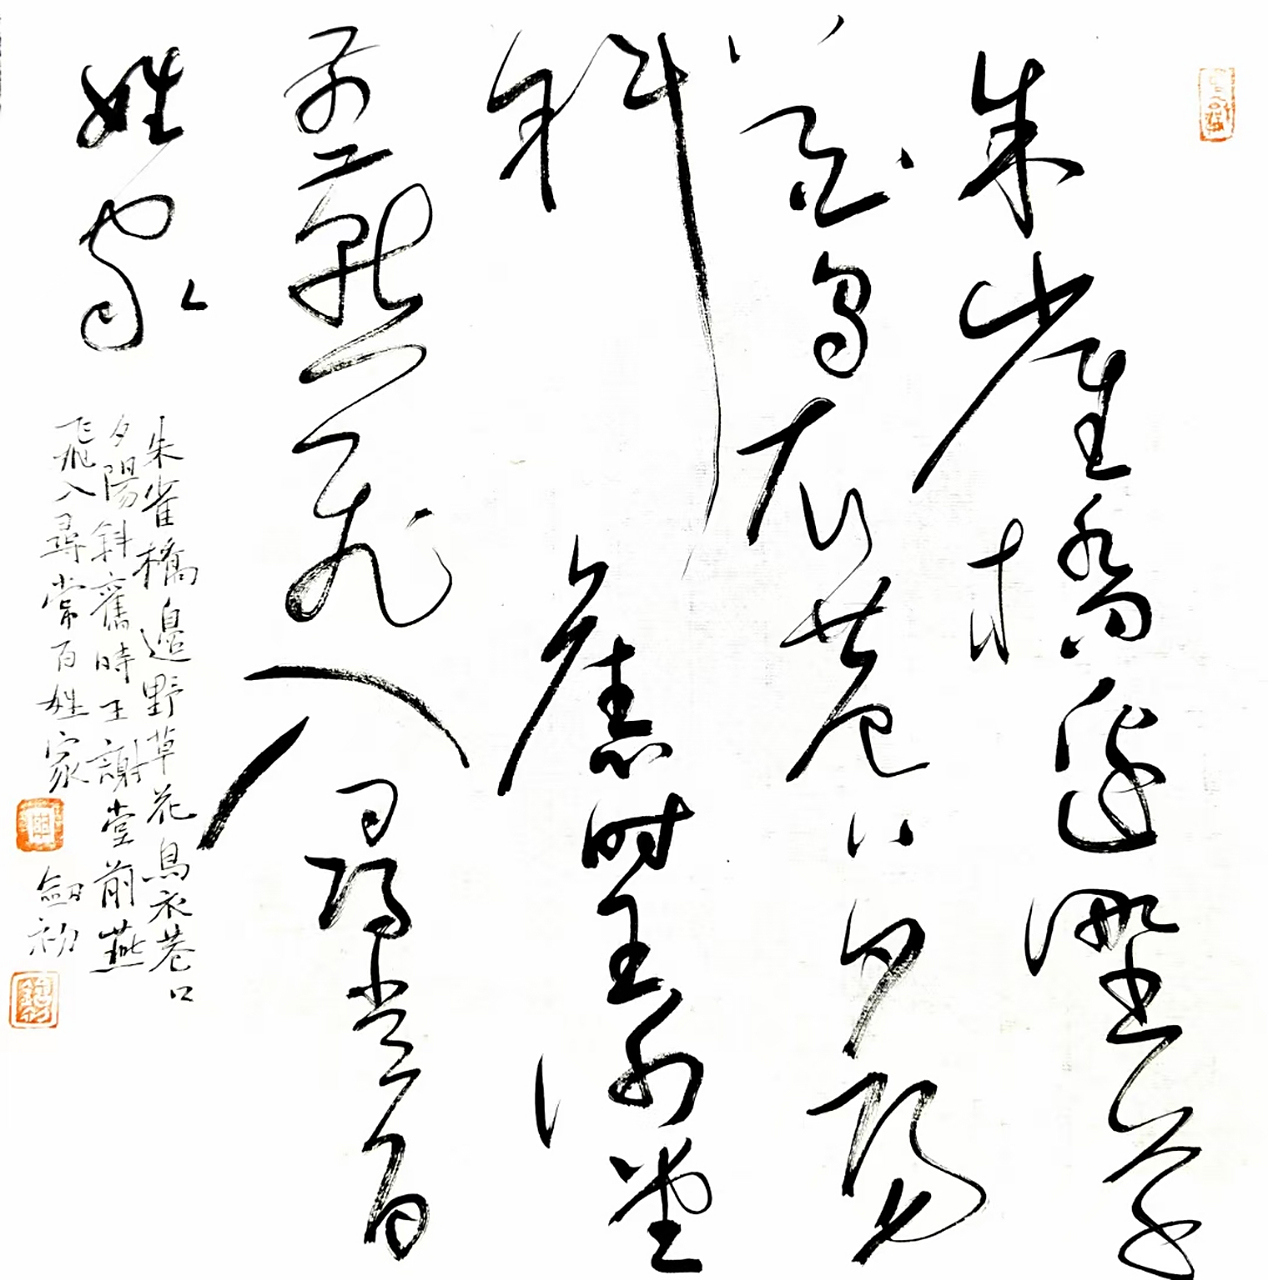 朱雀橋邊野草
花烏衣巷口夕陽
斜舊時王謝堂
前燕飛入尋常百
姓家
朱雀橋邊野草花烏衣巷口
夕陽斜舊時王謝堂前燕
飛入尋常百姓家
劍初